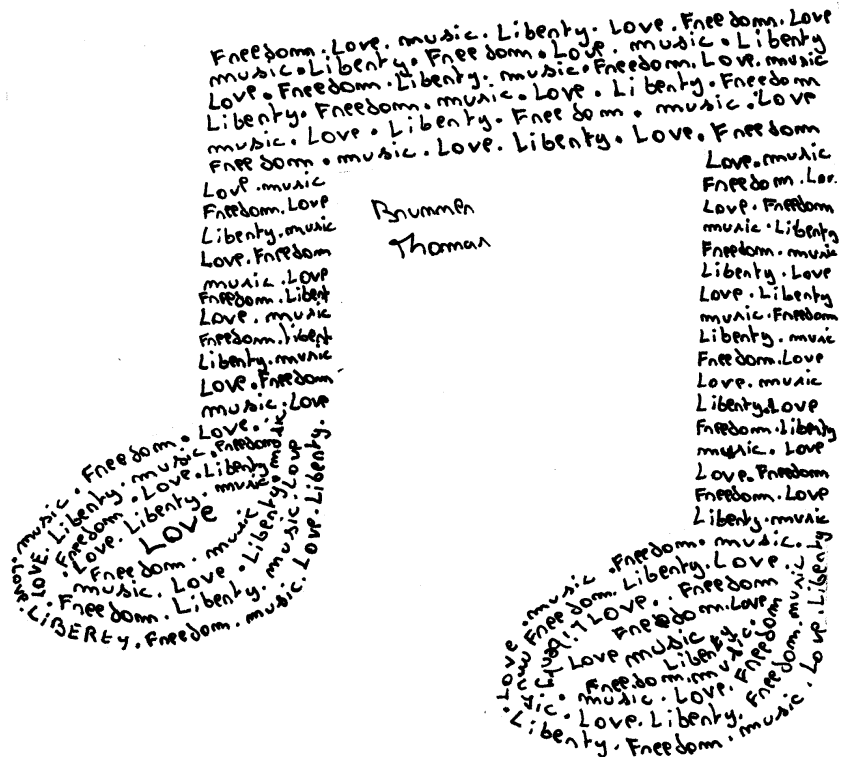 Freedom. Love. music. Liberty. Love. Freedom. Love
music. Liberty. Freedom. Love. music. Liberty
Love. Freedom. Liberty. music. Freedom. Love. music
Liberty. Freedom. music. Love. Liberty. Freedom
music. Love. Liberty. Freedom. music. Love
Freedom. music. Love. Liberty. Love. Freedom
Love. music
Freedom. Love
Liberty. music
Love. Freedom
music. Love
Freedom. Libert
Love. music
Freedom. Libert
Liberty. music
Love. Freedom
music. Love
Brummer
Thomas
Love. music
Freedom. Lov.
Love. Freedom
music. Liberty
Freedom. music
Liberty. Love
Love. Liberty
music. Freedom
Liberty. music
Freedom. Love
Love. music
Liberty. Love
Freedom. Liberty
music. Love
Love. Freedom
Freedom. Love
Liberty. music
music. Freedom. Love.
LOVE. Liberty. music. Freedom
Freedom. Love. Liberty
. Love. Liberty. music
LOVE
Freedom. music. Liberty. music
music. Love. Liberty. music. Love
. Freedom. Liberty. music. Love. Liberty.
. Love. LiBERty. Freedom. music. Love. Liberty.
. Love. music. Freedom. music.
music Freedom. Liberty. Love.
Liberty Love. Freedom
Freedom. Love
Love music
Liberty
Freedom. music.
music. Love. Freedom
. Love. Liberty. Freedom. music
. Liberty. Freedom. music. Love. Liberty